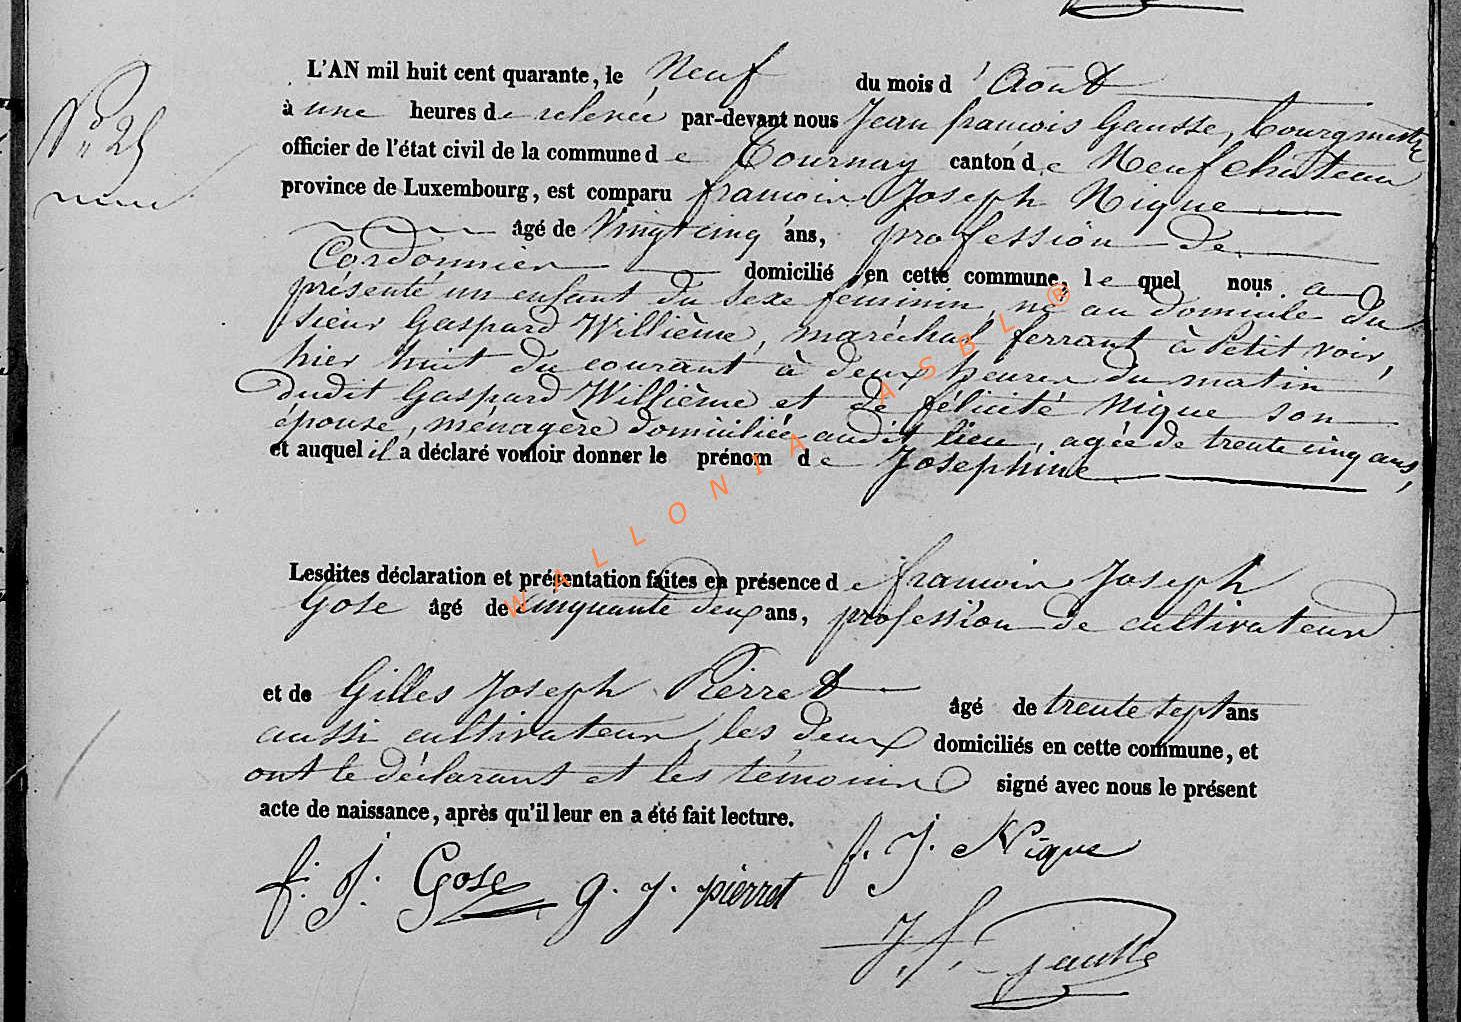 L'AN mil huit cent quarante, le Neuf du mois d'Août
N° 25
à une heures de relevée par-devant nous Jean françois Gausse, Bourgmestre
officier de l'état civil de la commune de Tournay canton de Neufchâteau
province de Luxembourg, est comparu françois Joseph Nique
âgé de Vingt cinq ans, profession de
Cordonnier domicilié en cette commune, le quel nous a
présenté un enfant du sexe féminin, né au domicile du
sieur Gaspard Willième, maréchal ferrant à Petit voir,
hier huit du courant à deux heures du matin
dudit Gaspard Willième et de félicité Nique son
épouse, ménagère domiciliée audit lieu, agée de trente cinq ans,
et auquel il a déclaré vouloir donner le prénom de Josephine
WALLONIA ASBL ®
Lesdites déclaration et présentation faites en présence de françois Joseph
Gose âgé de cinquante deux ans, profession de cultivateur
et de Gilles Joseph Pierret âgé de trente sept ans
aussi cultivateur, les deux domiciliés en cette commune, et
ont le déclarant et les témoins signé avec nous le présent
acte de naissance, après qu'il leur en a été fait lecture.
f. J. Nique
f. J. Gose g. j. pierret
J. f. Gausse